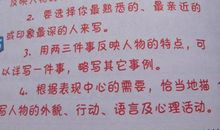 反映人物的
2. 要选择你最熟悉的、最亲近的
或印象最深的人来写。
3. 用两三件事反映人物的特点,可
以详写一件事,略写其它事例。
4. 根据表现中心的需要,恰当地描
写人物的外貌、行动、语言及心理活动。